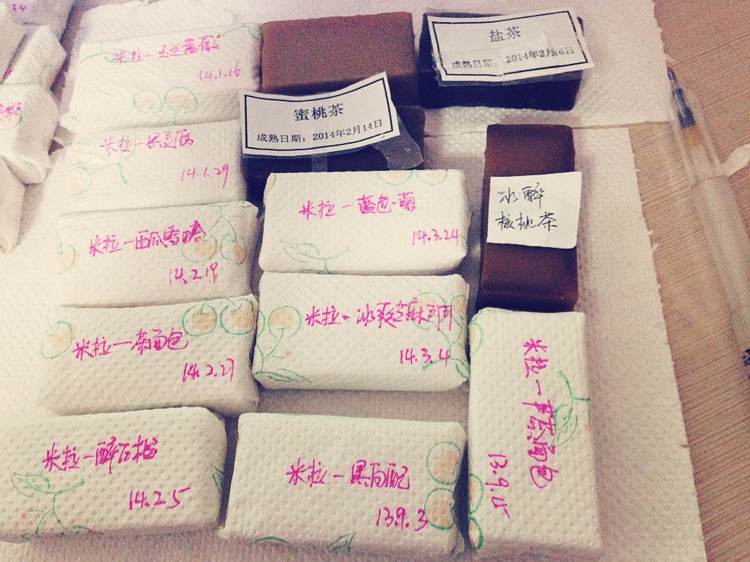 米拉一
14.1.16
盐茶
成熟日期：2014年2月6日
蜜桃茶
成熟日期：2014年2月14日
米拉一
14.1.29
米拉一
14.3.24
冰醉
核桃茶
米拉一西瓜
14.2.19
米拉一冰爽芝麻叮叮
14.3.4
米拉一茶面包
14.2.27
米拉一醉石榴
14.2.5
米拉一黑白配
13.9.3
米拉一
面包
13.9.15